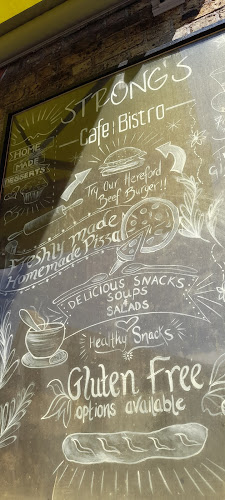 STRONG'S
Cafe | Bistro
HOME
MADE
DESSERTS
Try Our Hereford
Beef Burger!!
Freshly made
Homemade Pizza
DELICIOUS SNACKS
SOUPS
+
SALADS
Healthy Snacks
Gluten Free
options available